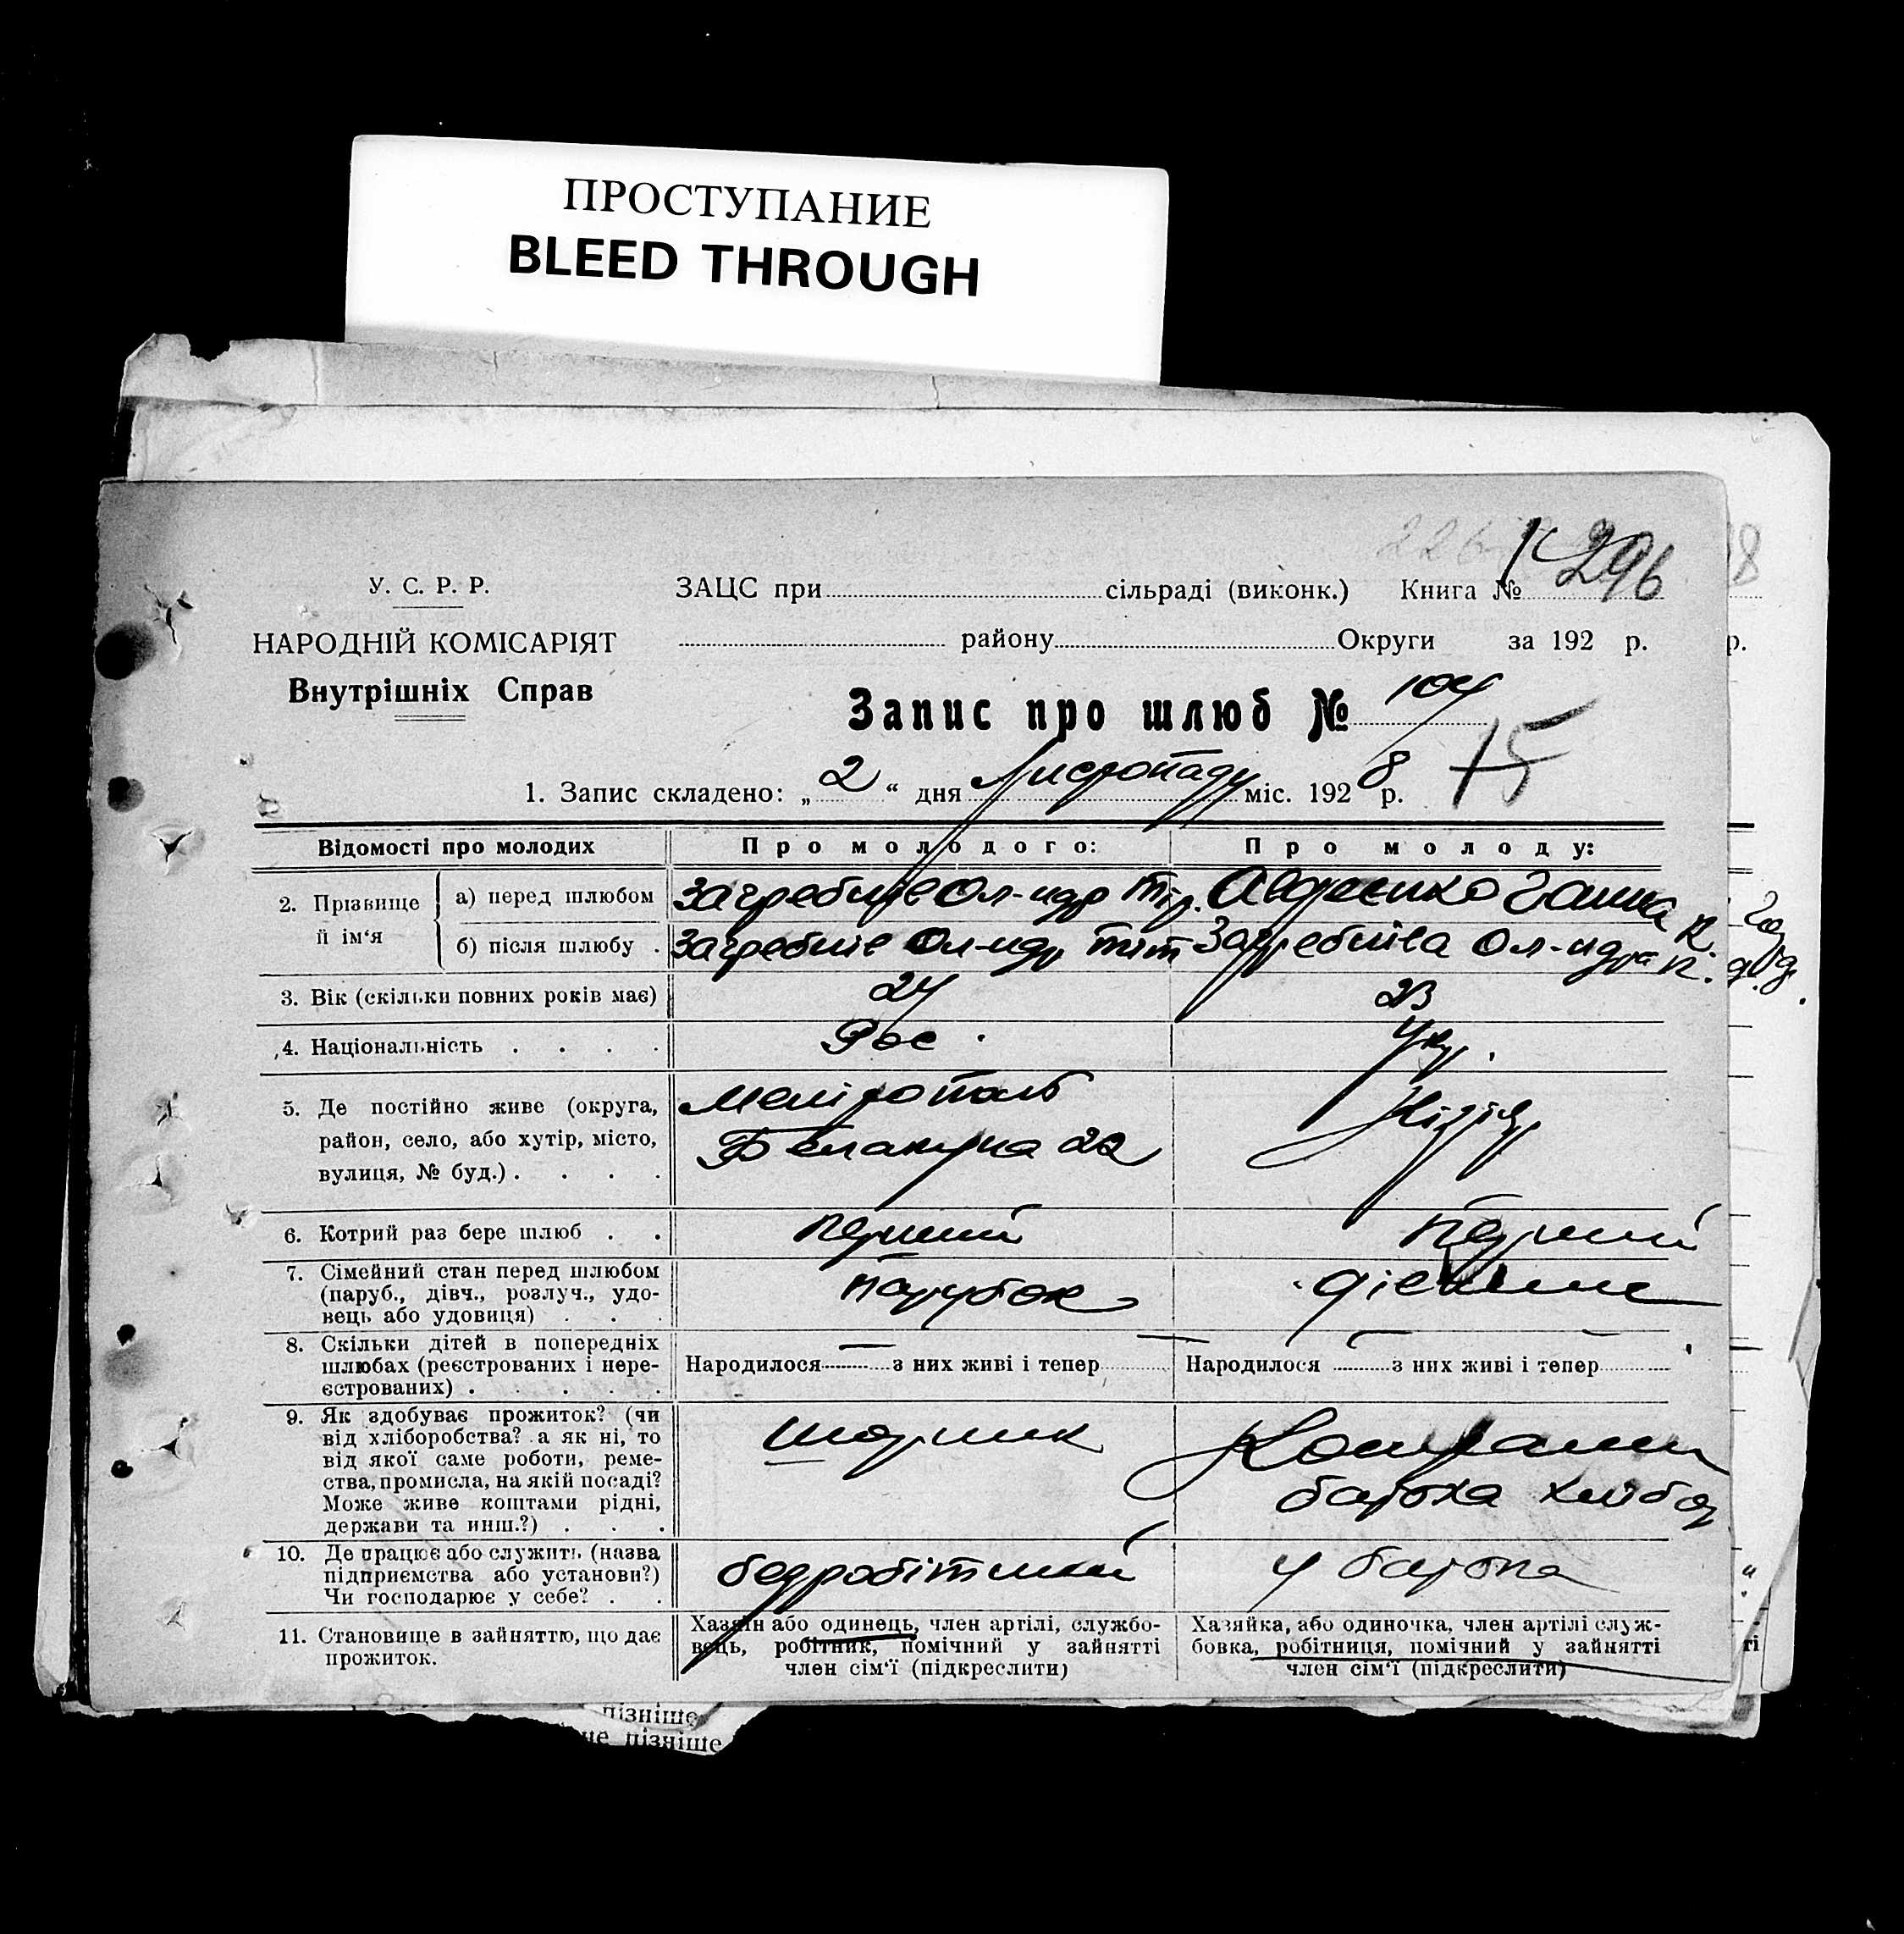 ПРОСТУПАНИЕ
BLEED THROUGH
К 296
У. С. Р. Р.
ЗАЦС при сільраді (виконк.) Книга №
НАРОДНІЙ КОМІСАРІЯТ
району Округи за 192 р.
Внутрішніх Справ
Запис про шлюб № 104
15
1. Запис складено: „2“ дня Листопаду міс. 1928 р.
Відомості про молодих
Про молодого:
Про молоду:
2. Прізвище й ім‘я
а) перед шлюбом
Загребнів Ол-идр
Авдієнко Ганна
б) після шлюбу .
Загребнів Ол-идр Тит
Загребнїва Ол-идра
3. Вік (скільки повних років має)
24
23
4. Національність . . . .
Рос.
Укр.
5. Де постійно живе (округа,
район, село, або хутір, місто,
вулиця, № буд.) . . . .
Меліτοполь
22
6. Котрий раз бере шлюб . .
перший
перший
7. Сімейний стан перед шлюбом
(паруб., дівч., розлуч., удо-
вець або удовиця) . . .
парубок
8. Скільки дітей в попередніх
шлюбах (реєстрованих і нере-
єстрованих) . . . . .
Народилося — з них живі і тепер —
Народилося — з них живі і тепер
9. Як здобуває прожиток? (чи
від хліборобства? а як ні, то
від якої саме роботи, реме-
ства, промисла, на якій посаді?
Може живе коштами рідні,
держави та инш.?) . . .
шорник
Коштами
батька хлібор
10. Де працює або служить (назва
підприємства або установи?)
Чи господарює у себе? . .
безробітний
у батька
11. Становище в зайняттю, що дає
прожиток.
Хазяїн або одинець, член артілі, службо-
вець, робітник, помічний у зайнятті
член сім‘ї (підкреслити)
Хазяйка, або одиночка, член артілі служ-
бовка, робітниця, помічний у зайнятті
член сім‘ї (підкреслити)
пізніше
не пізніше